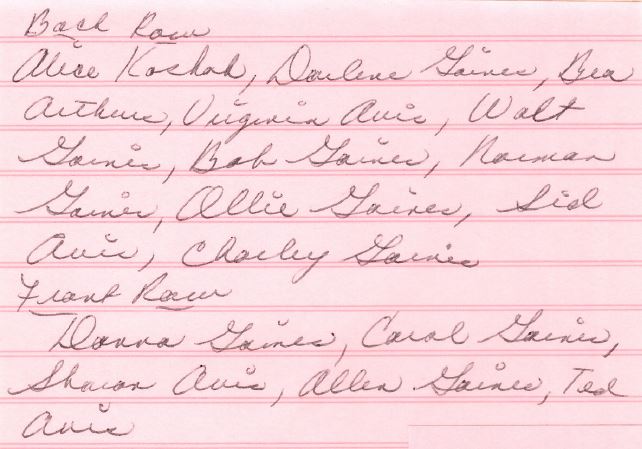 Back Row
Alice Koskoh, Darlene Gaines, Bea
Arthurs, Virginia Avis, Walt
Gaines, Bob Gaines, Norman
Gaines, Allie Gaines, Sid
Avis, Charley Gaines
Front Row
Donna Gaines, Carol Gaines,
Sharon Avis, Allen Gaines, Ted
Avis